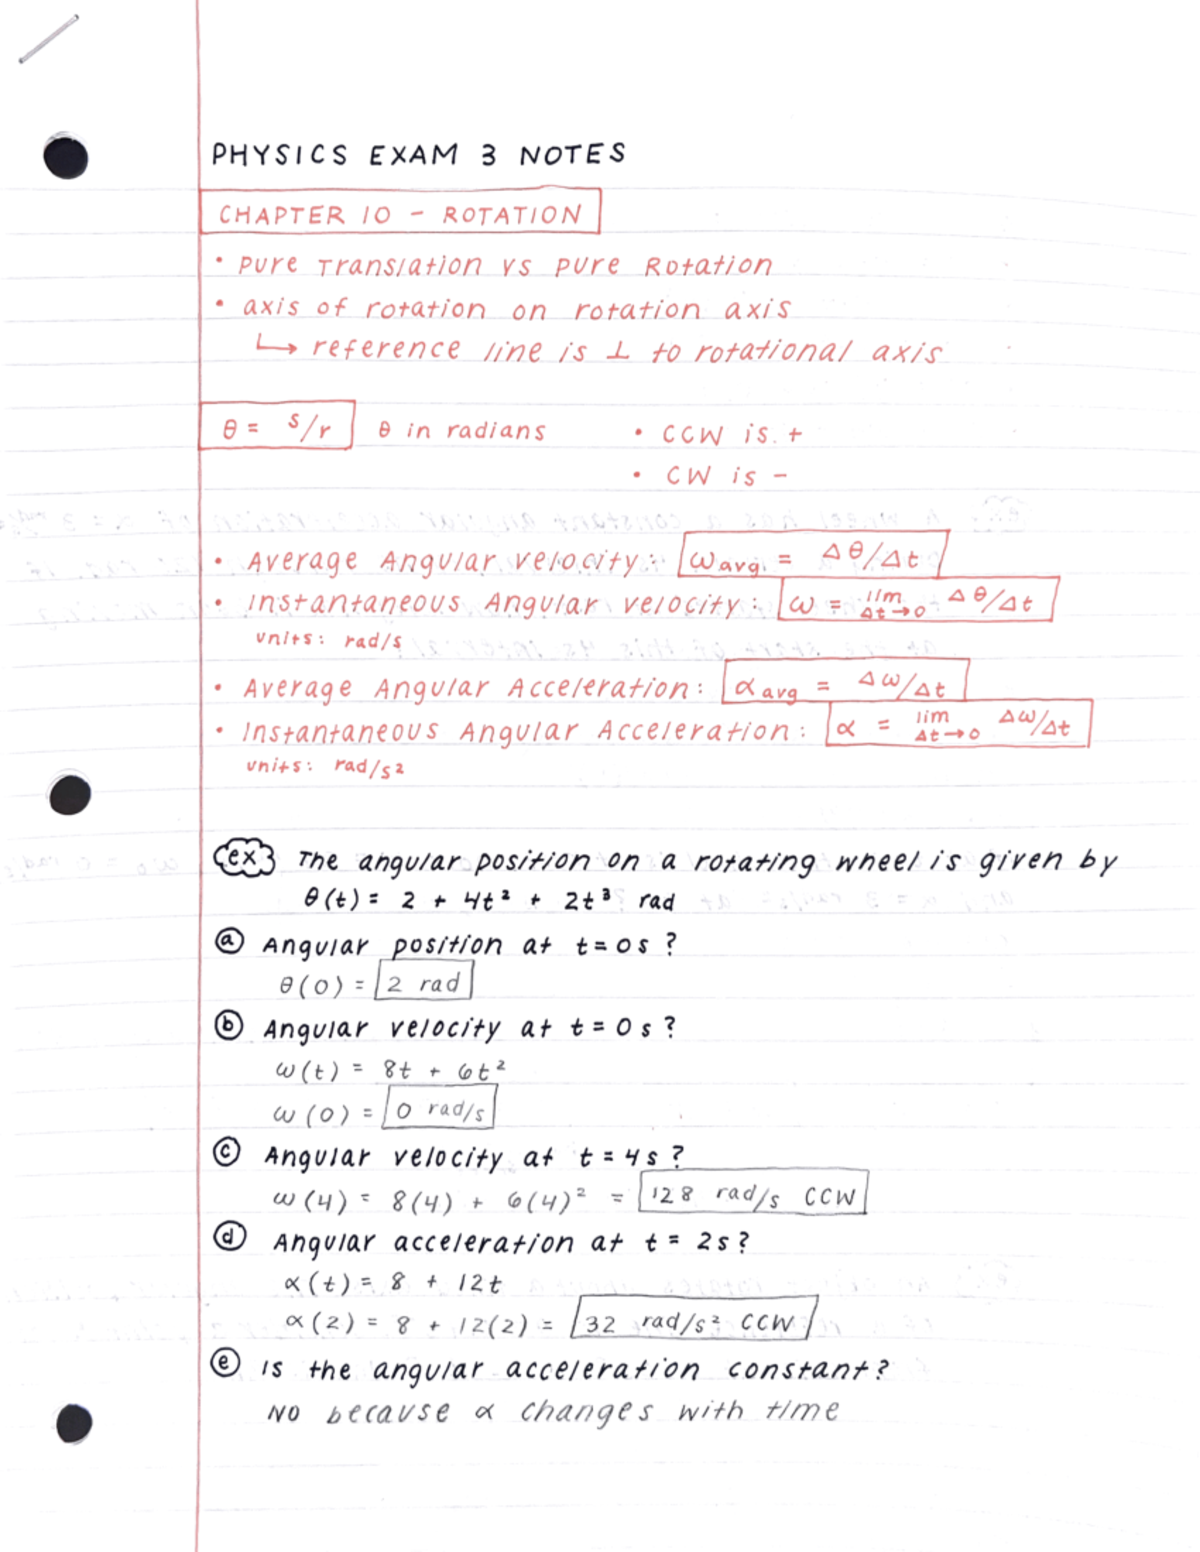 PHYSICS EXAM 3 NOTES
CHAPTER 10 - ROTATION
• Pure Translation vs Pure Rotation
• axis of rotation on rotation axis
↳ reference line is ⊥ to rotational axis
θ = s/r θ in radians • CCW is +
• CW is -
• Average Angular velocity: ωavg = Δθ/Δt
• Instantaneous Angular velocity: ω = lim Δt→0 Δθ/Δt
units: rad/s
• Average Angular Acceleration: αavg = Δω/Δt
• Instantaneous Angular Acceleration: α = lim Δt→0 Δω/Δt
units: rad/s²
ex The angular position on a rotating wheel is given by
θ(t) = 2 + 4t² + 2t³ rad
ⓐ Angular position at t=0s?
θ(0) = 2 rad
ⓑ Angular velocity at t=0s?
ω(t) = 8t + 6t²
ω(0) = 0 rad/s
ⓒ Angular velocity at t=4s?
ω(4) = 8(4) + 6(4)² = 128 rad/s CCW
ⓓ Angular acceleration at t = 2s?
α(t) = 8 + 12t
α(2) = 8 + 12(2) = 32 rad/s² CCW
ⓔ Is the angular acceleration constant?
No because α changes with time